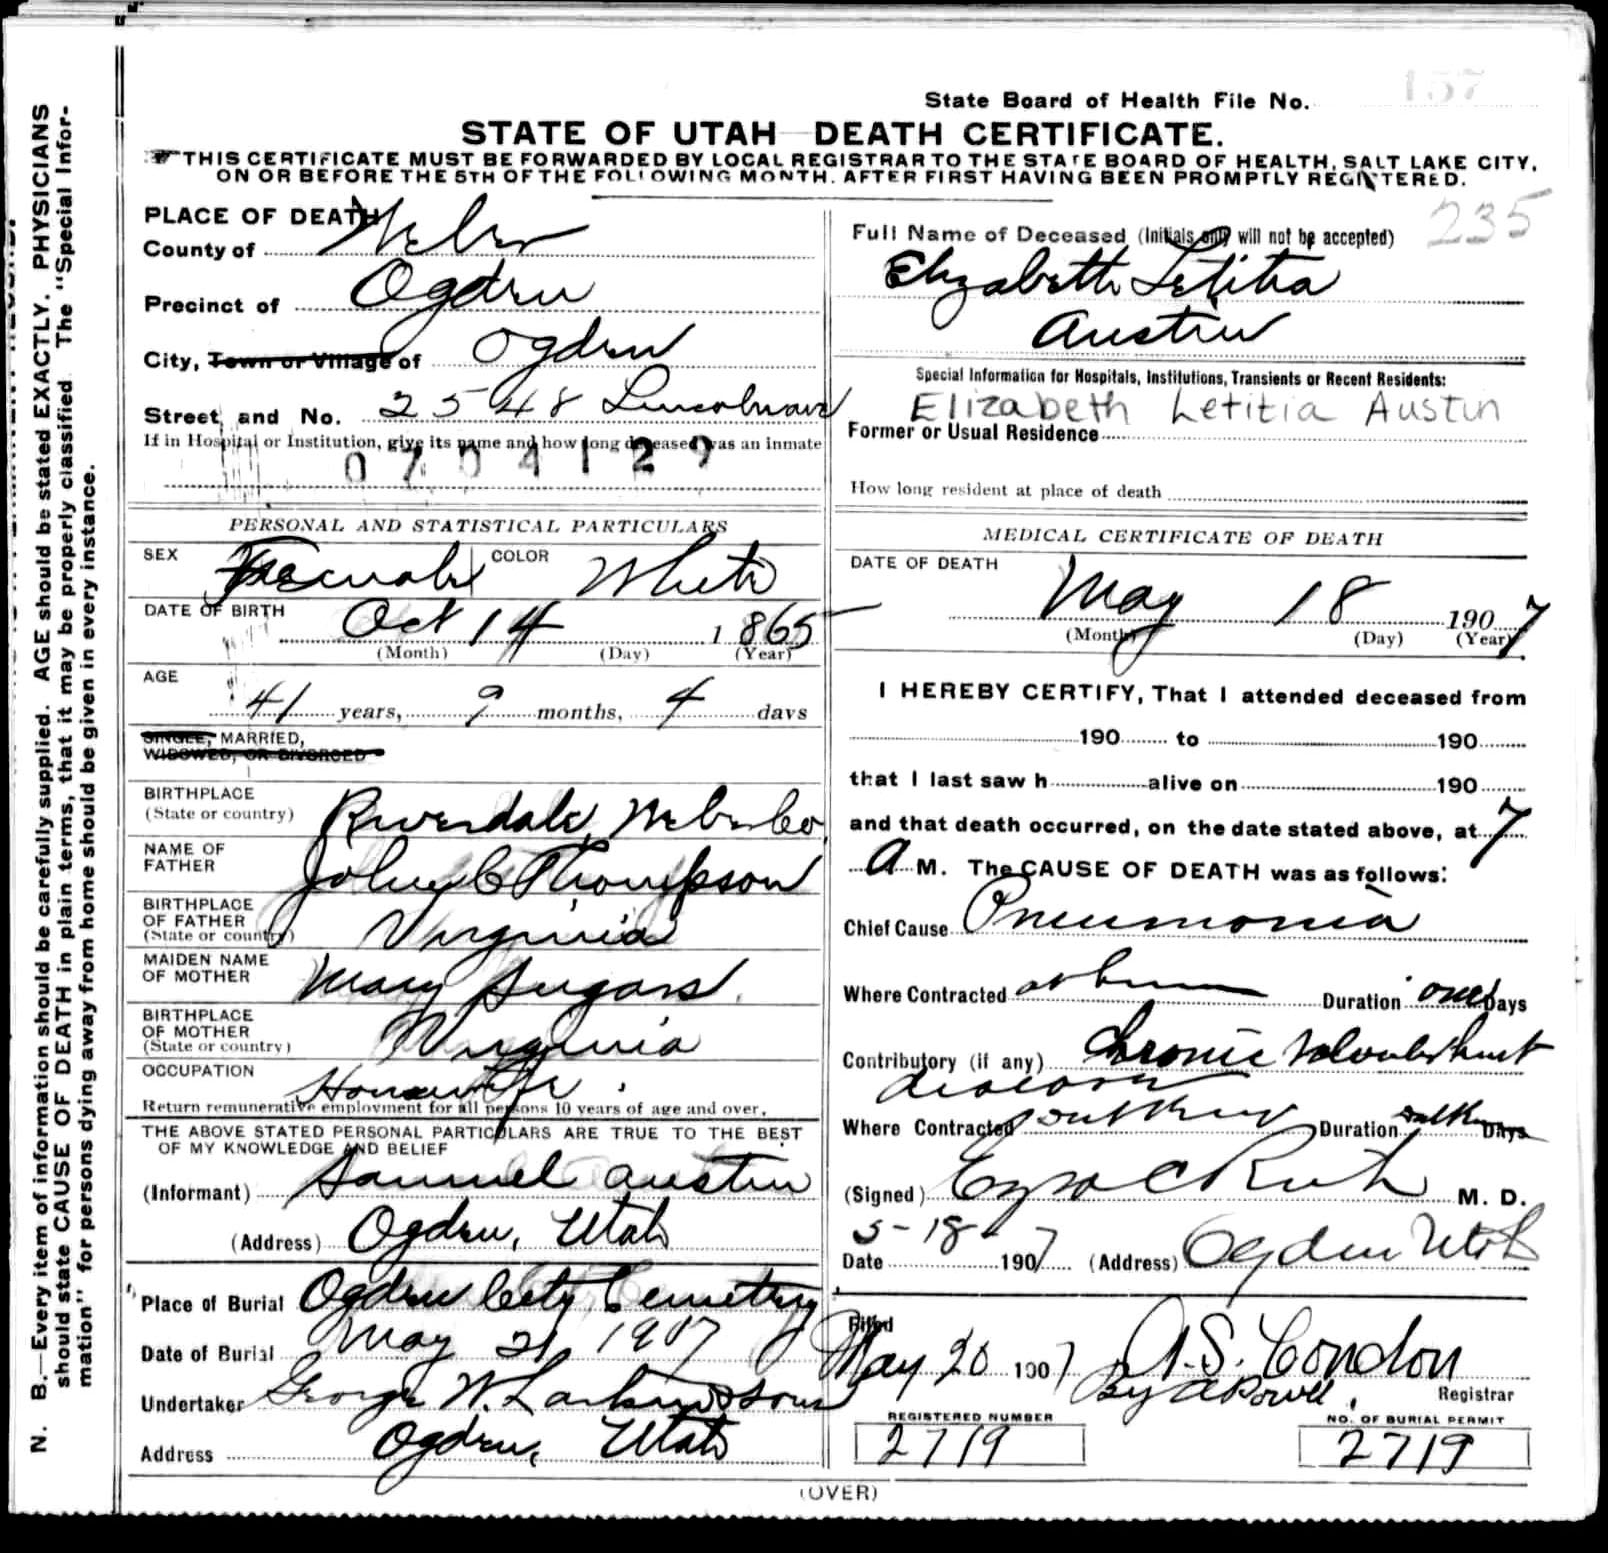 State Board of Health File No. 157
STATE OF UTAH DEATH CERTIFICATE.
THIS CERTIFICATE MUST BE FORWARDED BY LOCAL REGISTRAR TO THE STATE BOARD OF HEALTH, SALT LAKE CITY,
ON OR BEFORE THE 5TH OF THE FOLLOWING MONTH. AFTER FIRST HAVING BEEN PROMPTLY REGISTERED.
235
PLACE OF DEATH
County of Weber
Precinct of Ogden
City, Town or Village of Ogden
Street and No. 2548 Lincoln ave
If in Hospital or Institution, give its name and how long deceased was an inmate
0704129
PERSONAL AND STATISTICAL PARTICULARS
SEX Female COLOR White
DATE OF BIRTH Oct 14 1865
(Month) (Day) (Year)
AGE 41 years, 9 months, 4 days
SINGLE, MARRIED,
WIDOWED, OR DIVORCED
BIRTHPLACE
(State or country) Riverdale, Weber Co
NAME OF
FATHER John C Thompson
BIRTHPLACE
OF FATHER
(State or country) Virginia
MAIDEN NAME
OF MOTHER Mary Sugars
BIRTHPLACE
OF MOTHER
(State or country) Virginia
OCCUPATION Housewife
Return remunerative employment for all persons 10 years of age and over.
THE ABOVE STATED PERSONAL PARTICULARS ARE TRUE TO THE BEST
OF MY KNOWLEDGE AND BELIEF
(Informant) Samuel Austin
(Address) Ogden, Utah
Place of Burial Ogden City Cemetery
Date of Burial May 21 1907
Undertaker George W. Larkin & Sons
Address Ogden, Utah
Full Name of Deceased (Initials only will not be accepted)
Elizabeth Letitia
Austin
Special Information for Hospitals, Institutions, Transients or Recent Residents:
Elizabeth Letitia Austin
Former or Usual Residence
How long resident at place of death
MEDICAL CERTIFICATE OF DEATH
DATE OF DEATH
May 18 1907
(Month) (Day) (Year)
I HEREBY CERTIFY, That I attended deceased from
190 to 190
that I last saw h alive on 190
and that death occurred, on the date stated above, at 7
A M. The CAUSE OF DEATH was as follows:
Chief Cause Pneumonia
Where Contracted at home Duration Days
Contributory (if any) Chronic Valvular heart
disease
Where Contracted Duration Days
(Signed) Ezra C Rich M. D.
5-18 Date 1907 (Address) Ogden Utah
Filed
May 20 1907 A. S. Condon
By A Powell, Registrar
REGISTERED NUMBER
2719
NO. OF BURIAL PERMIT
2719
(OVER)
N. B.—Every item of information should be carefully supplied. AGE should be stated EXACTLY. PHYSICIANS
should state CAUSE OF DEATH in plain terms, that it may be properly classified. The "Special Infor-
mation" for persons dying away from home should be given in every instance.